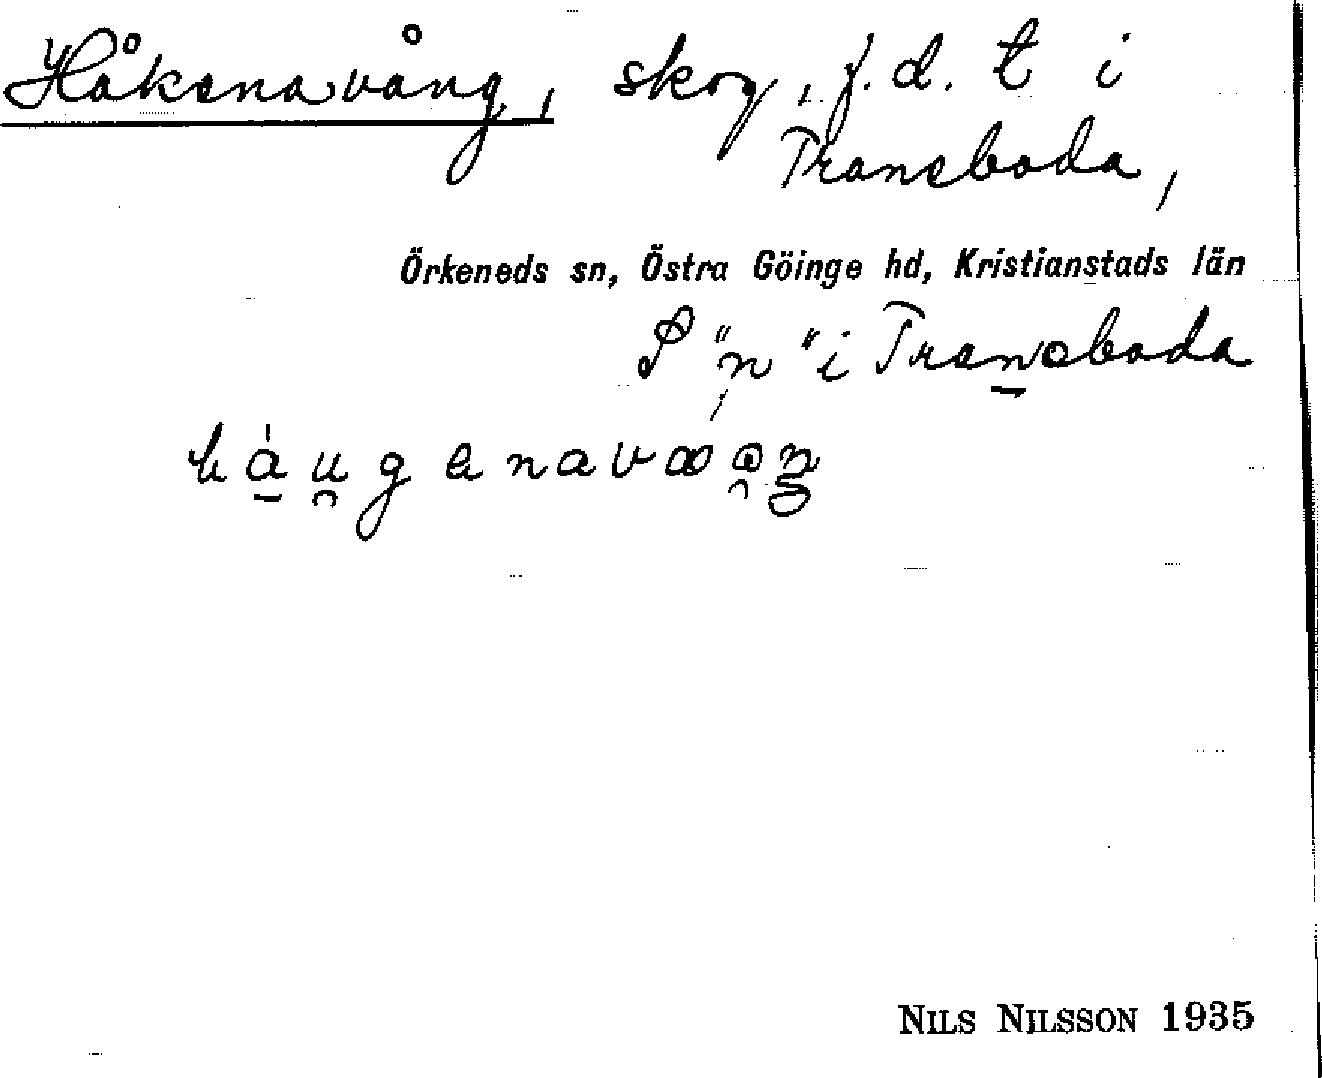 Håkanavång, skog, f.d. t i
Transboda,
Örkeneds sn, Östra Göinge hd, Kristianstads län
S "n" i Transboda
NILS NILSSON 1935